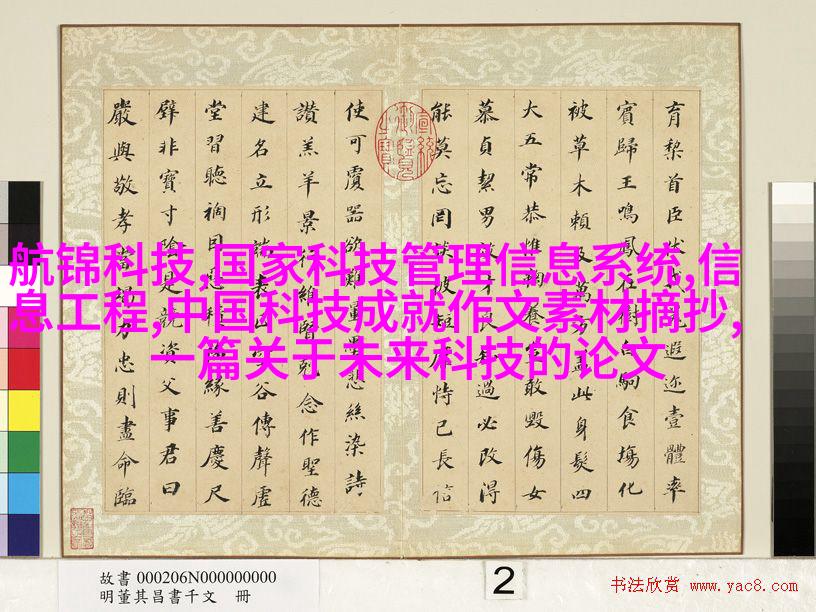 育棃首臣伏戎遐迩壹體率
賓歸王鳴鳳在樹白駒食場化
被草木賴及萬方盖此身髮四
大五常恭惟鞠養豈敢毀傷女
慕貞絜男效才良知過必改得
能莫忘罔談彼短靡恃己長信
使可覆器欲難量墨悲絲染詩
讚羔羊景行維賢剋念作聖德
建名立形端表正谷傳聲虛
堂習聽禍因惡積緣善慶尺
璧非寶寸陰是競資父事君曰
嚴與敬孝當竭力忠則盡命臨
航锦科技,国家科技管理信息系统,信
息工程,中国科技成就作文素材摘抄,
一篇关于未来科技的论文
故書 000206N000000000
明董其昌書千文 冊
2
书法欣赏 www.yac8.com